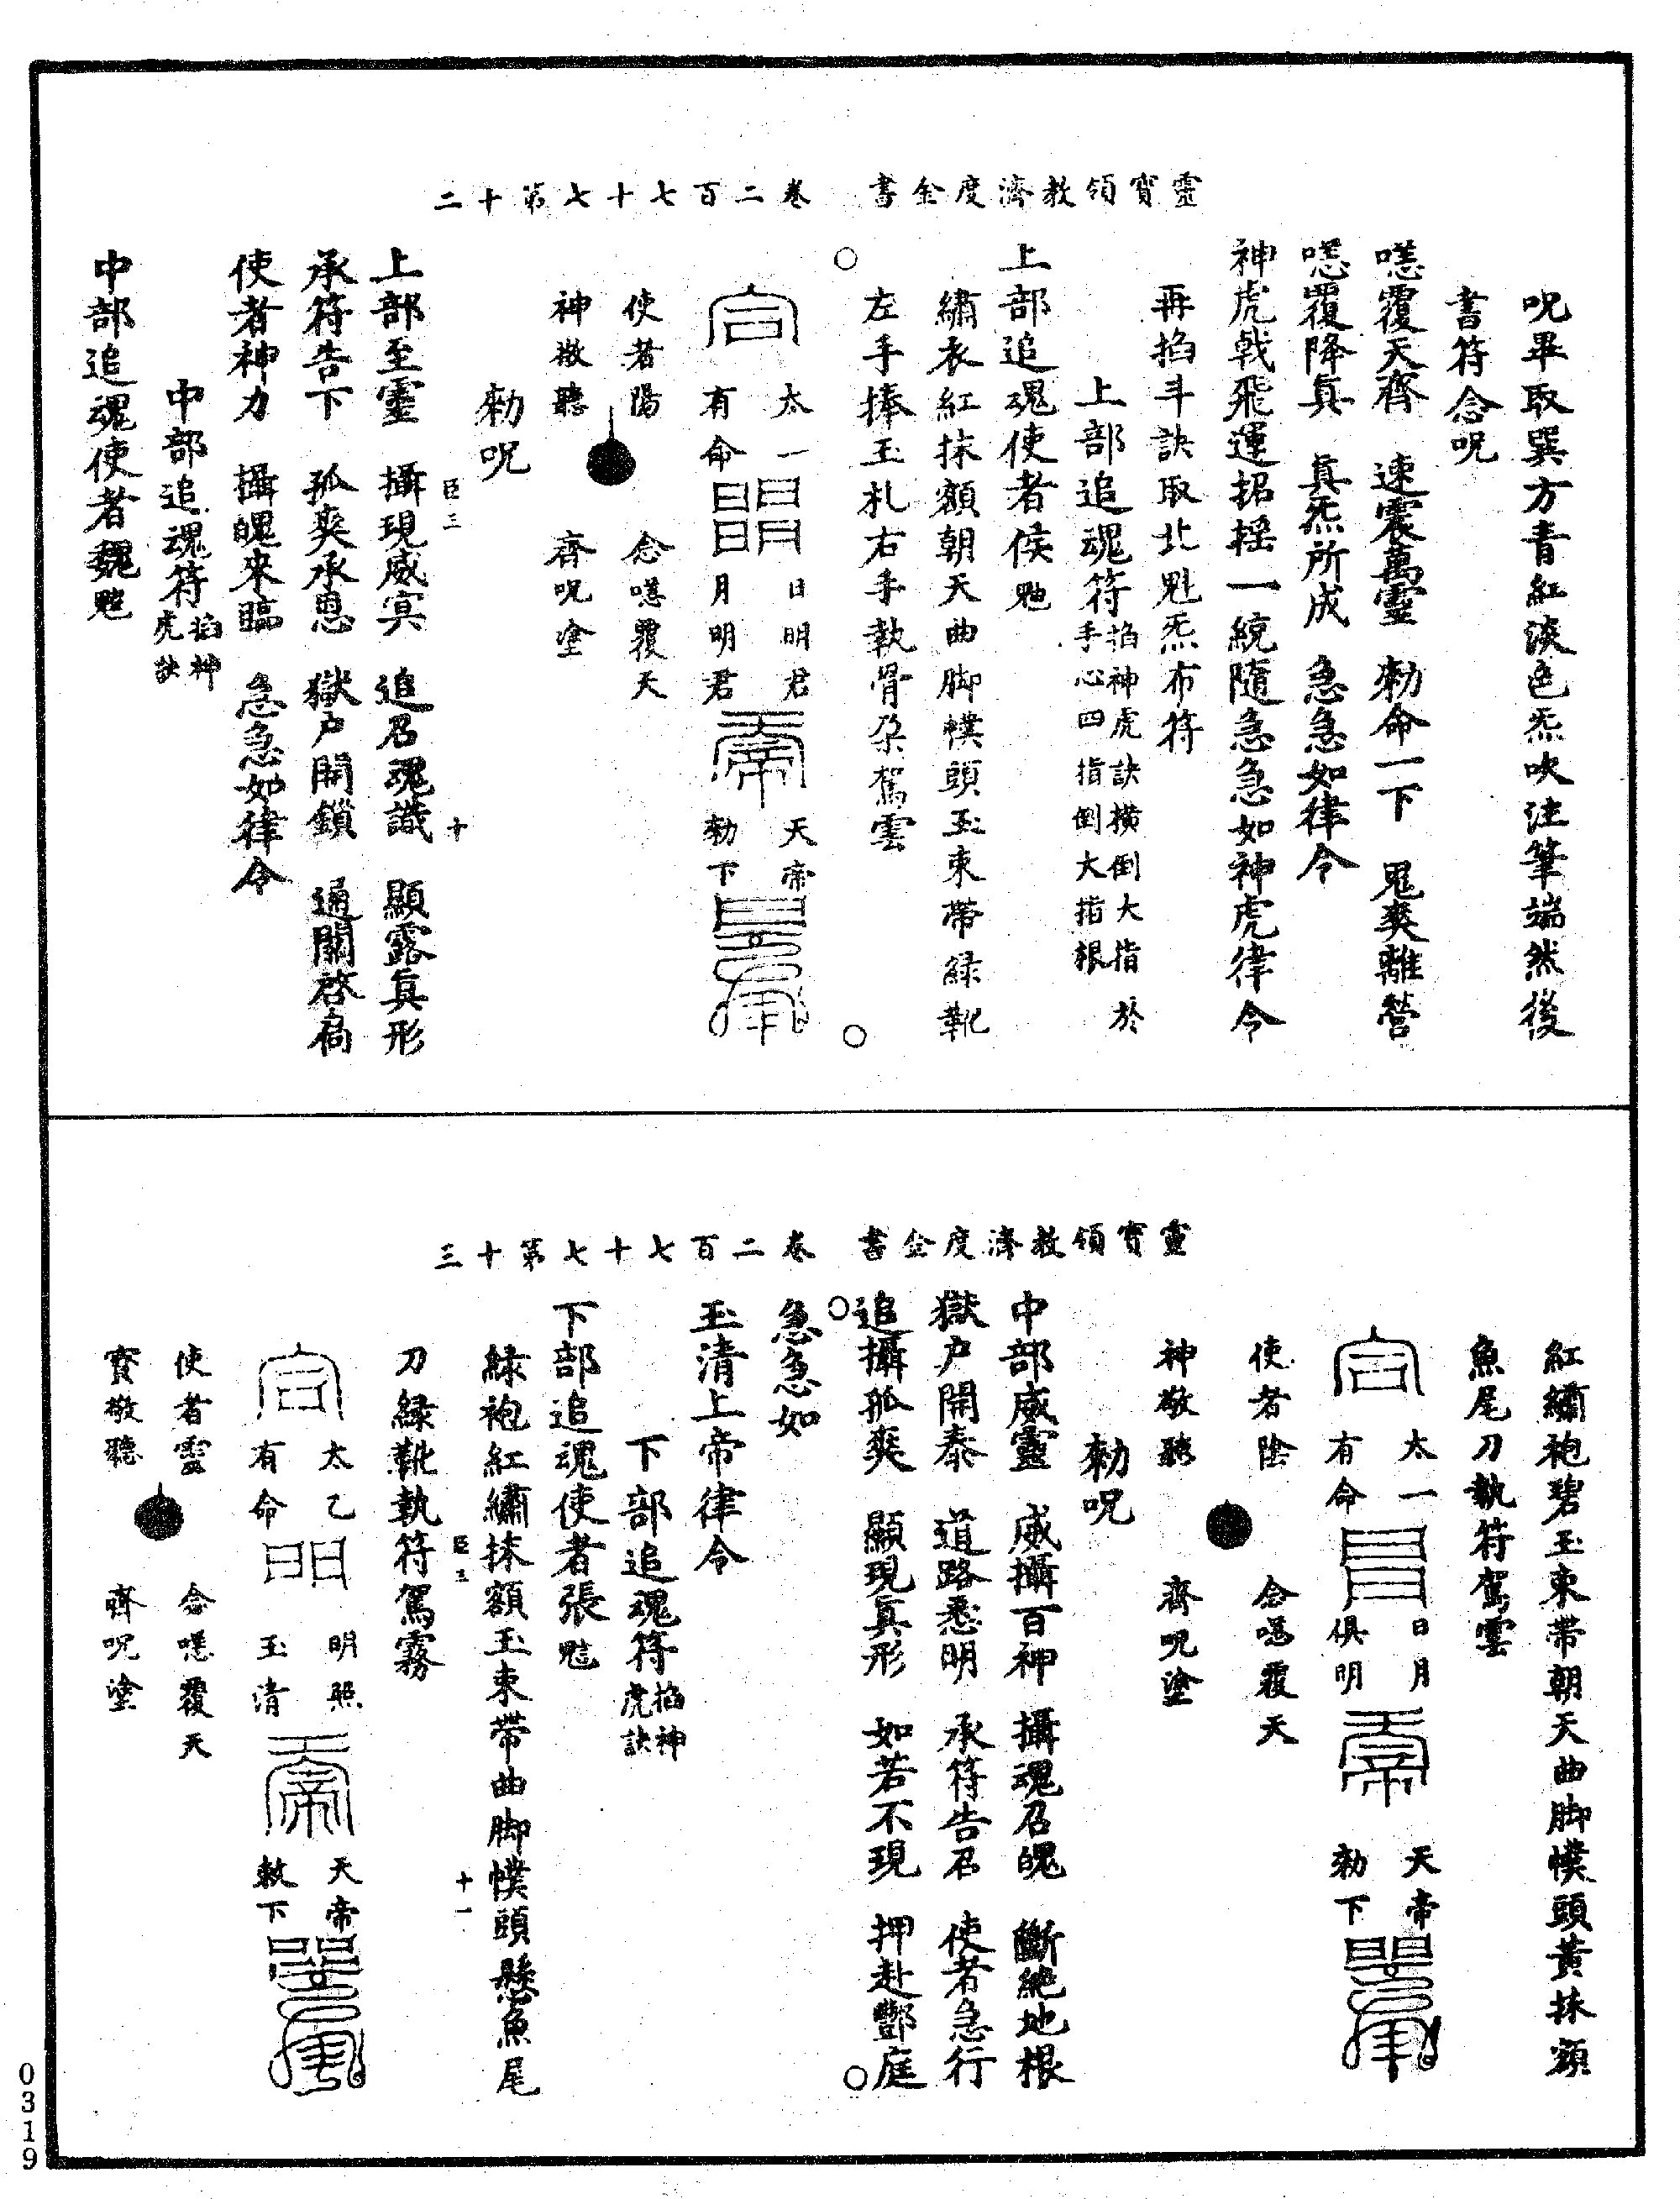 靈寶領教濟度金書　卷二百七十七第十二
呪畢取巽方青紅淡色炁吹注筆端然後
書符念呪
嘿覆天齊　速震萬靈　勑命一下　鬼爽離營
嘿覆降真　真炁所成　急急如律令
神虎戟飛運招搖一統隨急急如神虎律令
再掐斗訣取北魁炁布符
上部追魂符掐神虎訣橫倒大指於手心四指倒大指根
上部追魂使者侯
繡衣紅抹額朝天曲脚幞頭玉束帶綠靴
左手捧玉札右手執骨朶駕雲
太一有命
日明君月明君
天帝勑下
使者陽　念嘿覆天
神敬聽　齊呪塗
勑呪
臣三　十
上部至靈　攝現威㝠　追召魂識　顯露真形
承符告下　孤爽承恩　獄户開鎖　通關啓扃
使者神力　攝魄來臨　急急如律令
中部追魂符掐神虎訣
中部追魂使者魏
靈寶領教濟度金書　卷二百七十七第十三
紅繡袍碧玉束帶朝天曲脚幞頭黃抹額
魚尾刀執符駕雲
太一有命
日月俱明
天帝勑下
使者陰　念嘿覆天
神敬聽　齊呪塗
勑呪
中部威靈　威攝百神　攝魂召魄　斷絶地根
獄户開泰　道路悉明　承符告召　使者急行
追攝孤爽　顯現真形　如若不現　押赴酆庭
急急如
玉清上帝律令
下部追魂符掐神虎訣
下部追魂使者張
綠袍紅繡抹額玉束帶曲脚幞頭懸魚尾
臣三　十一
刀綠靴執符駕霧
太乙有命
明照玉清
天帝敕下
使者靈　念嘿覆天
寶敬聽　齊呪塗
0319